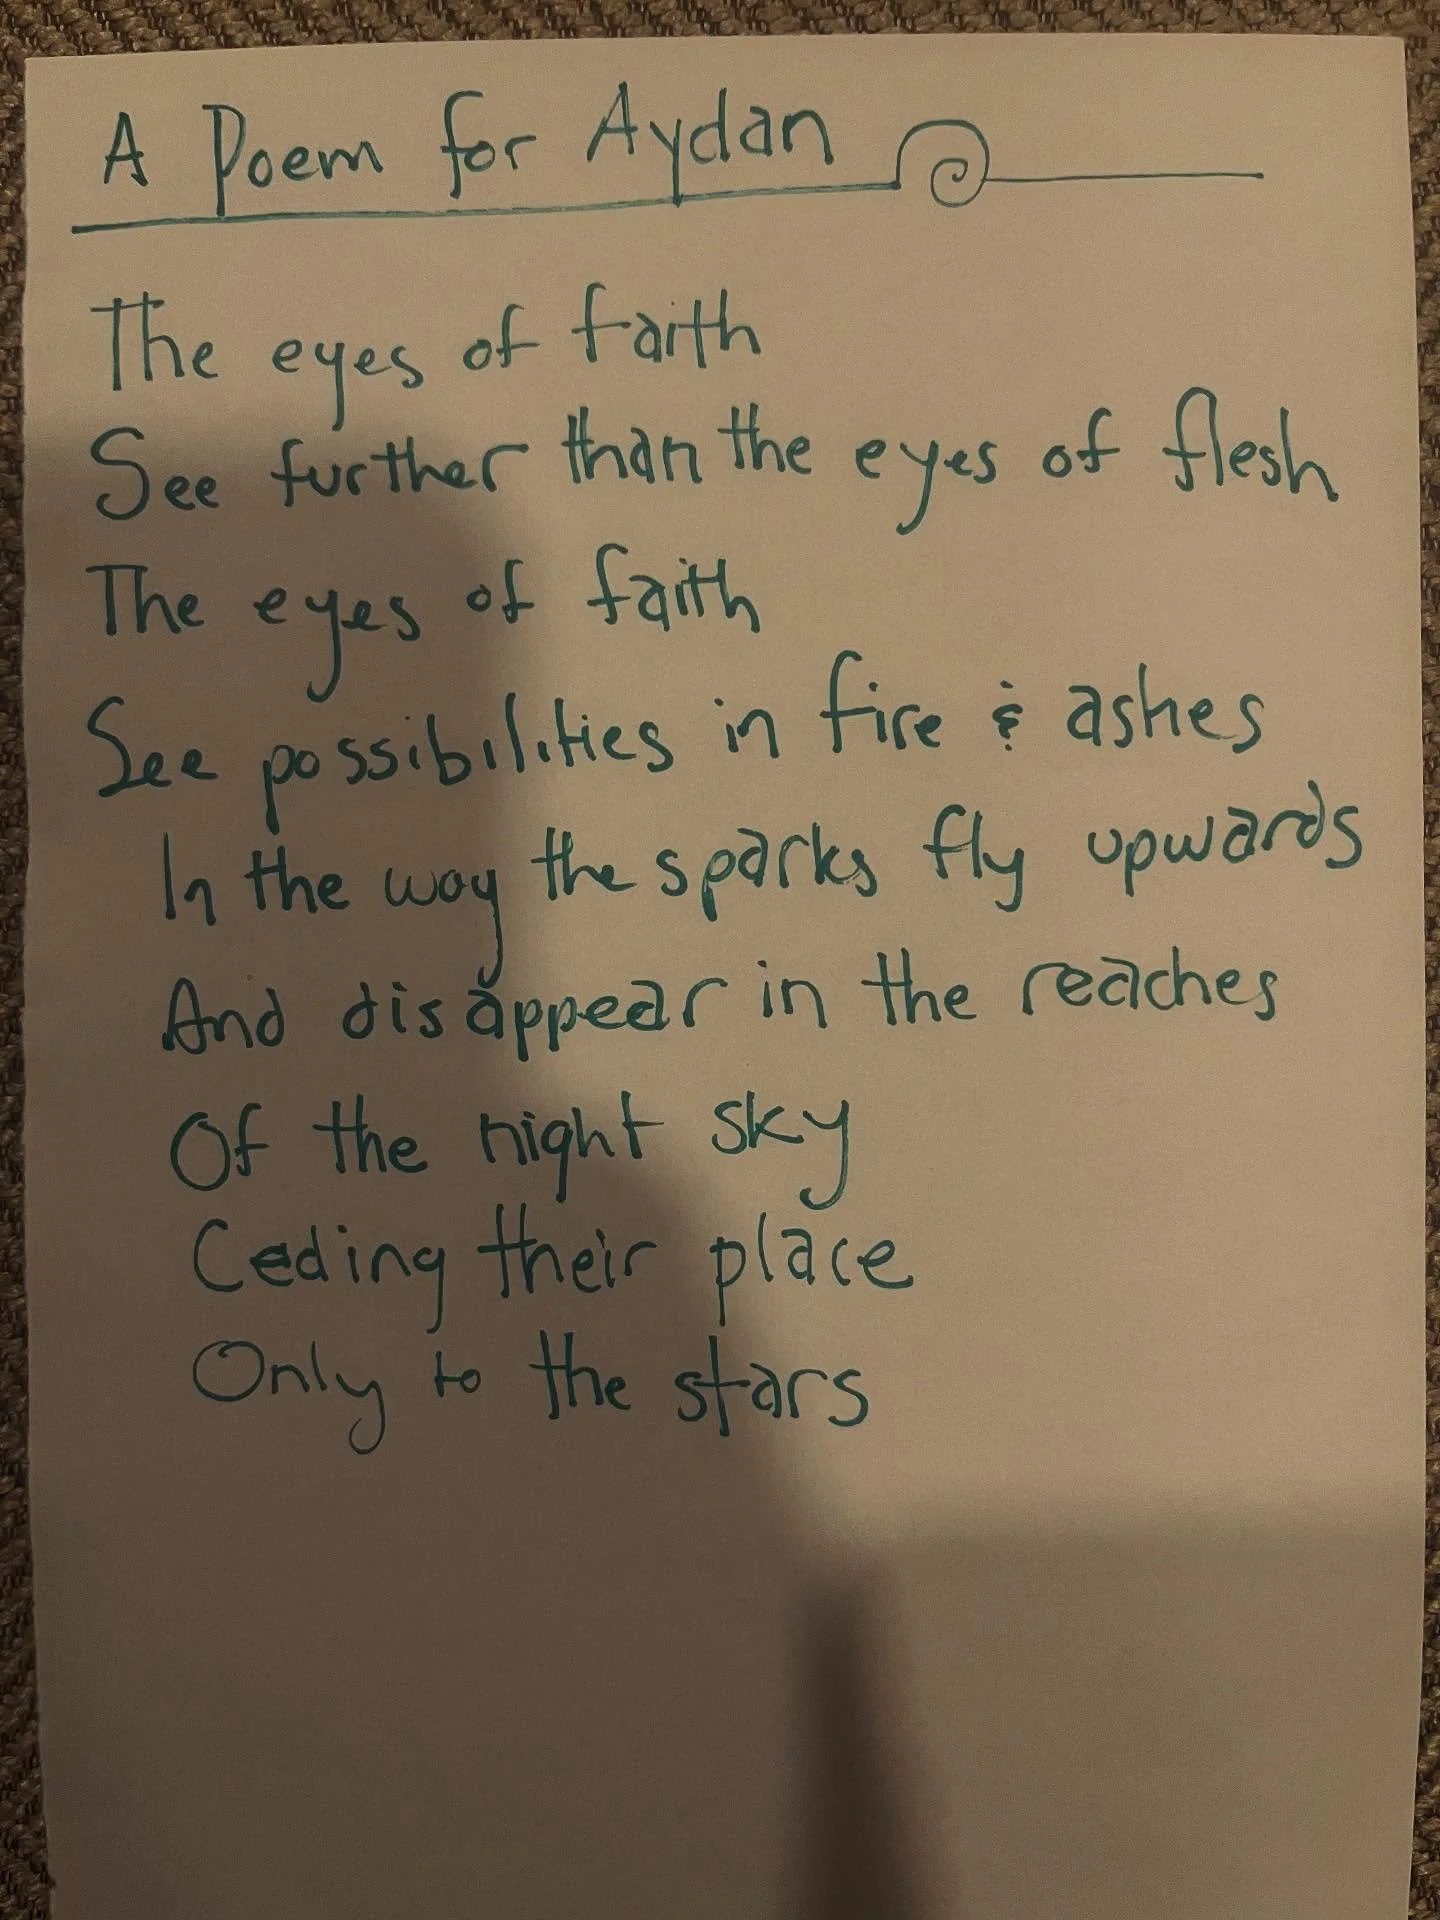 A Poem for Aydan
The eyes of faith
See further than the eyes of flesh
The eyes of faith
See possibilities in fire & ashes
In the way the sparks fly upwards
And disappear in the reaches
Of the night sky
Ceding their place
Only to the stars